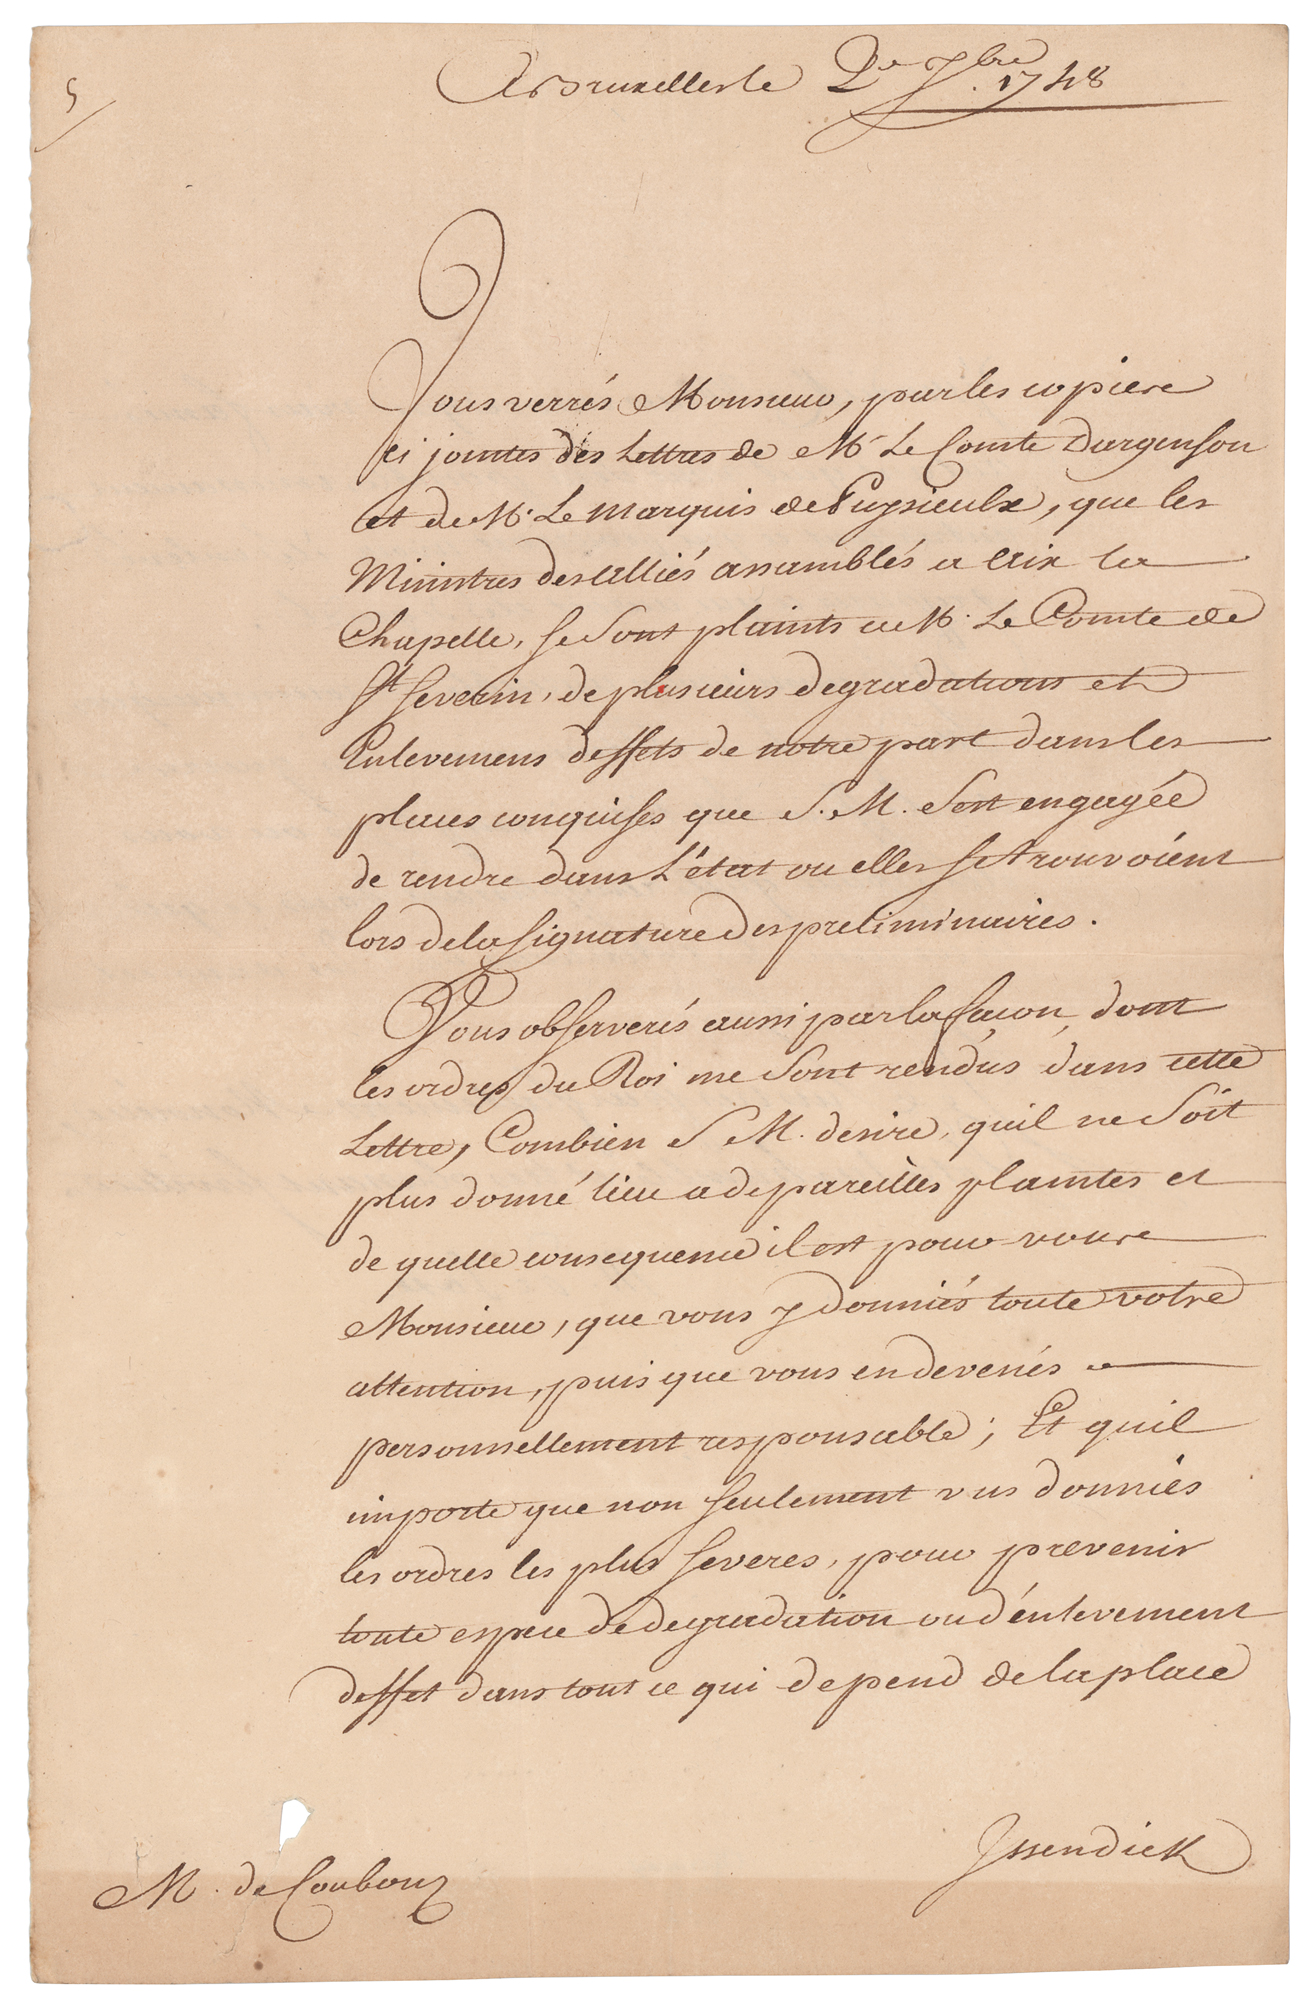 5
A Bruxelles le 2e 7bre 1748
Vous verrés Monsieur, par les copies
ci jointes des Lettres de Mr Le Comte Dargenson
et de Mr. Le Marquis de Puysieulx, que les
Ministres des alliés assamblés a Aix la
Chapelle, se sont plaints a Mr. Le Comte de
St Severin, de plusieurs degradations et
Enlevemens deffets de notre part dans les
places conquises que S. M. s'est engagée
de rendre dans L'état ou elles se trouvoient
lors de la signature des preliminaires.
Vous observerés aussi par la façon, dont
les ordres du Roi me sont rendus dans cette
Lettre, Combien S M. desire, quil ne soit
plus donné lieu a de pareilles plaintes et
de quelle consequence il est pour vous
Monsieur, que vous y donniés toute votre
attention, puis que vous en devenés
personnellement responsable; Et quil
importe que non seulement vus donnies
les ordres les plus severes, pour prevenir
toute espece de degradation ou d'enlevement
deffet dans tout ce qui depend de la place
Issendick
M. de Coubouz